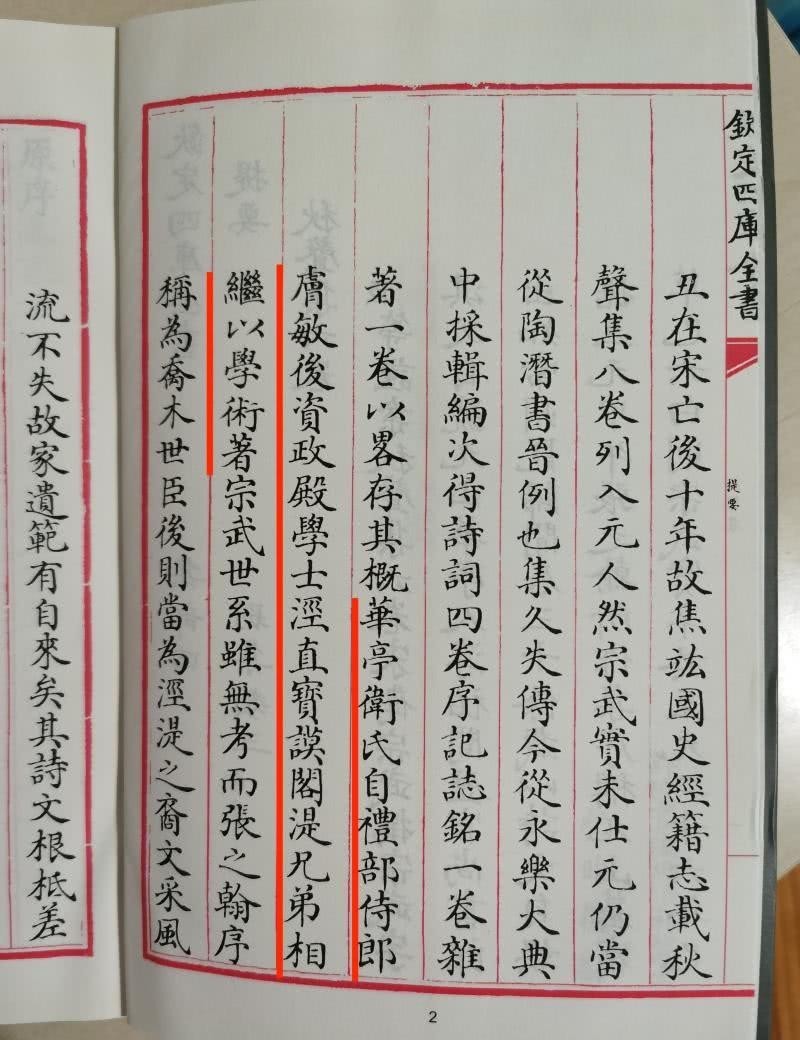 欽定四庫全書
提要
丑在宋亡後十年故焦竑國史經籍志載秋
聲集八卷列入元人然宗武實未仕元仍當
從陶潛書晉例也集久失傳今從永樂大典
中採輯編次得詩詞四卷序記誌銘一卷雜
著一卷以畧存其概華亭衛氏自禮部侍郎
膚敏後資政殿學士涇直寶謨閣湜兄弟相
繼以學術著宗武世系雖無考而張之翰序
稱為喬木世臣後則當為涇湜之裔文采風
流不失故家遺範有自來矣其詩文根柢差
2